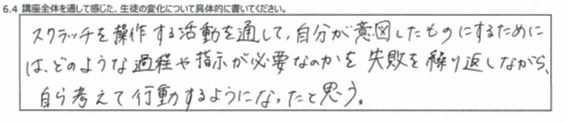 6.4 講座全体を通して感じた、生徒の変化について具体的に書いてください。
スクラッチを操作する活動を通して、自分が意図したものにするために
は、どのような過程や指示が必要なのかを失敗を繰り返しながら、
自ら考えて行動するようになったと思う。